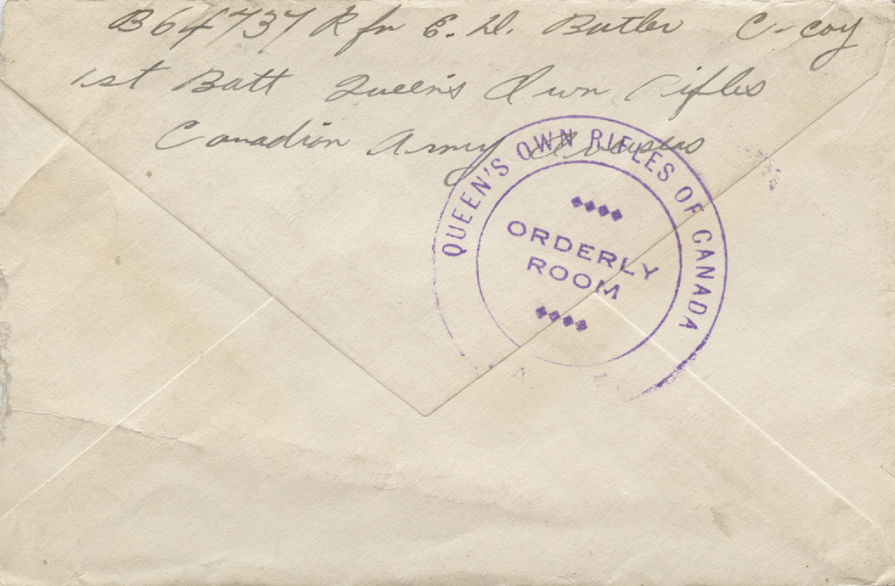 B64737 Rfn E. D. Butler C-coy
1st Batt Queen's Own Rifles
Canadian Army Overseas
QUEEN'S OWN RIFLES OF CANADA
ORDERLY
ROOM